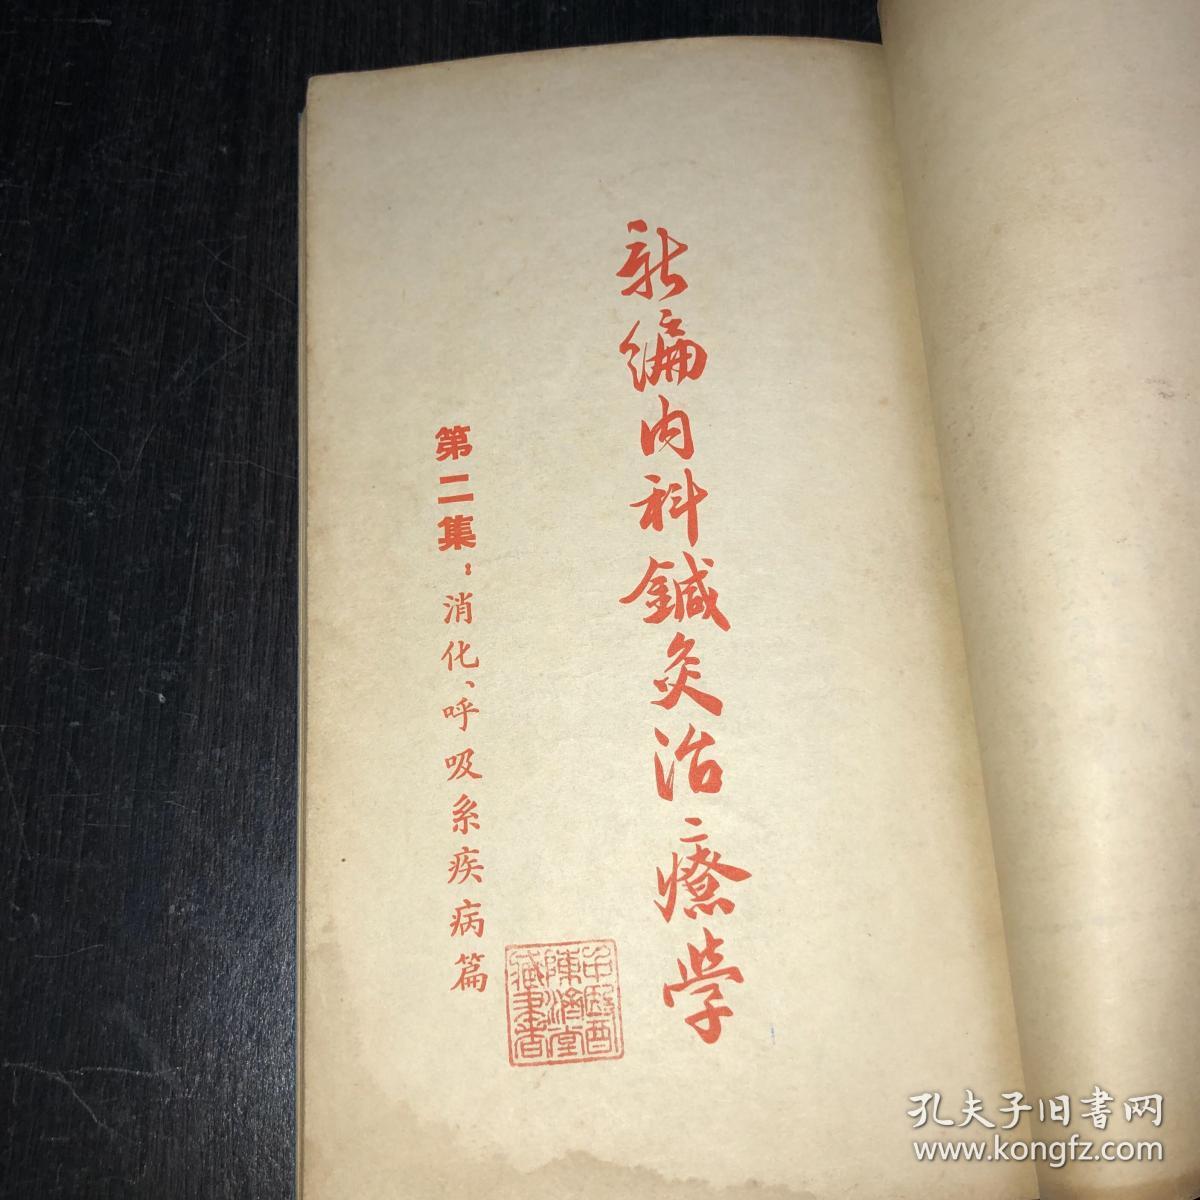 新编内科鍼灸治療学
第二集：消化、呼吸系疾病篇
中醫
陳濟堂
藏書
孔夫子旧书网
www.kongfz.com